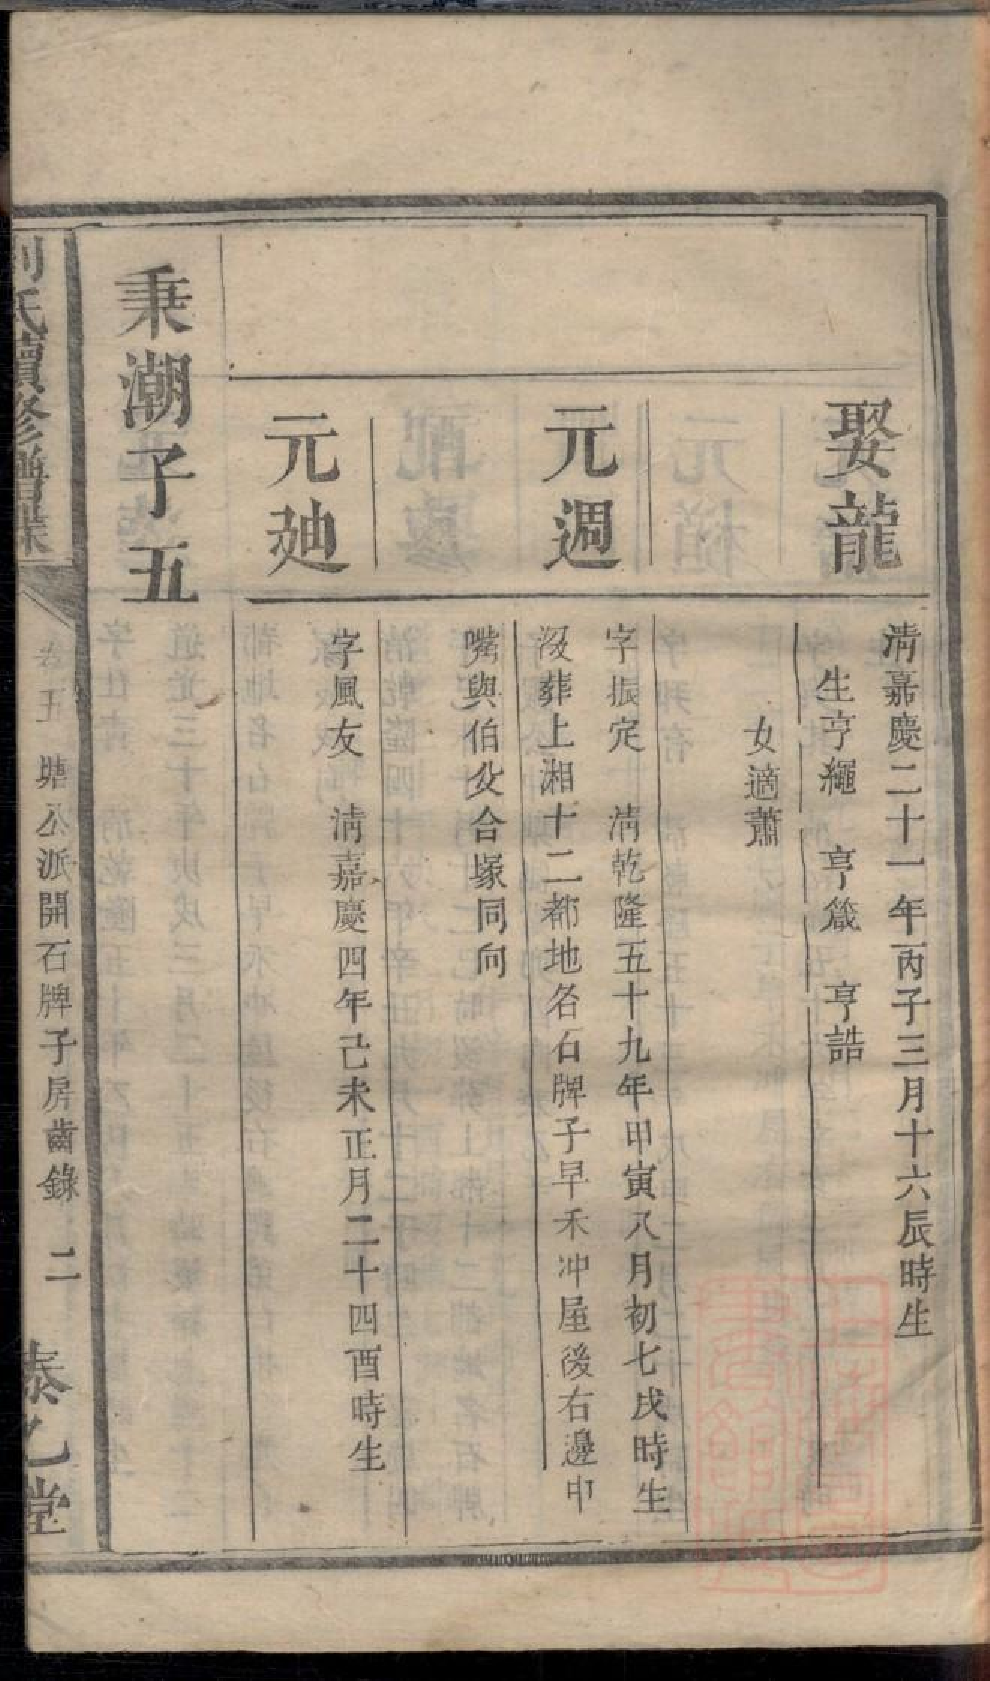 娶龍
清嘉慶二十一年丙子三月十六辰時生
生亨繩 亨箴 亨誥
女適蕭
元週
字振定 清乾隆五十九年甲寅八月初七戌時生
歿葬上湘十二都地名石牌子早禾冲屋後右邊申
嘴與伯父合塚同向
元廸
字風友 清嘉慶四年己未正月二十四酉時生
秉潮子五
劉氏續修譜牒
卷五 塘公派開石牌子房齒錄 二
泰乙堂